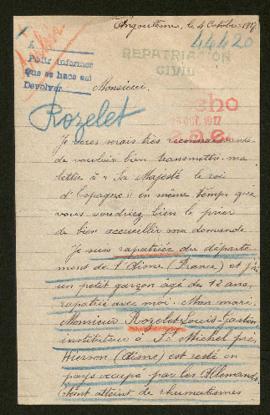 Angoulême, le 4 Octobre 1917
44420
A
Pour informer
que se hace así
Devolver
REPATRIACION
CIVIL
Monsieur,
Rozelet
1917
Je vous serais très reconnaissante
de vouloir bien transmettre ma
lettre à "Sa Majesté le roi
d'Espagne" en même temps que
vous voudriez bien le prier
de bien accueillir ma demande.
Je suis rapatriée du départe-
ment de l'Aisne (France) et j'ai
un petit garçon âgé de 12 ans,
rapatrié avec moi. Mon mari,
Monsieur Rozelet Louis-Gaston
instituteur à St Michel près
Hirson (Aisne) est resté en
pays occupé par les Allemands,
étant atteint de rhumatismes